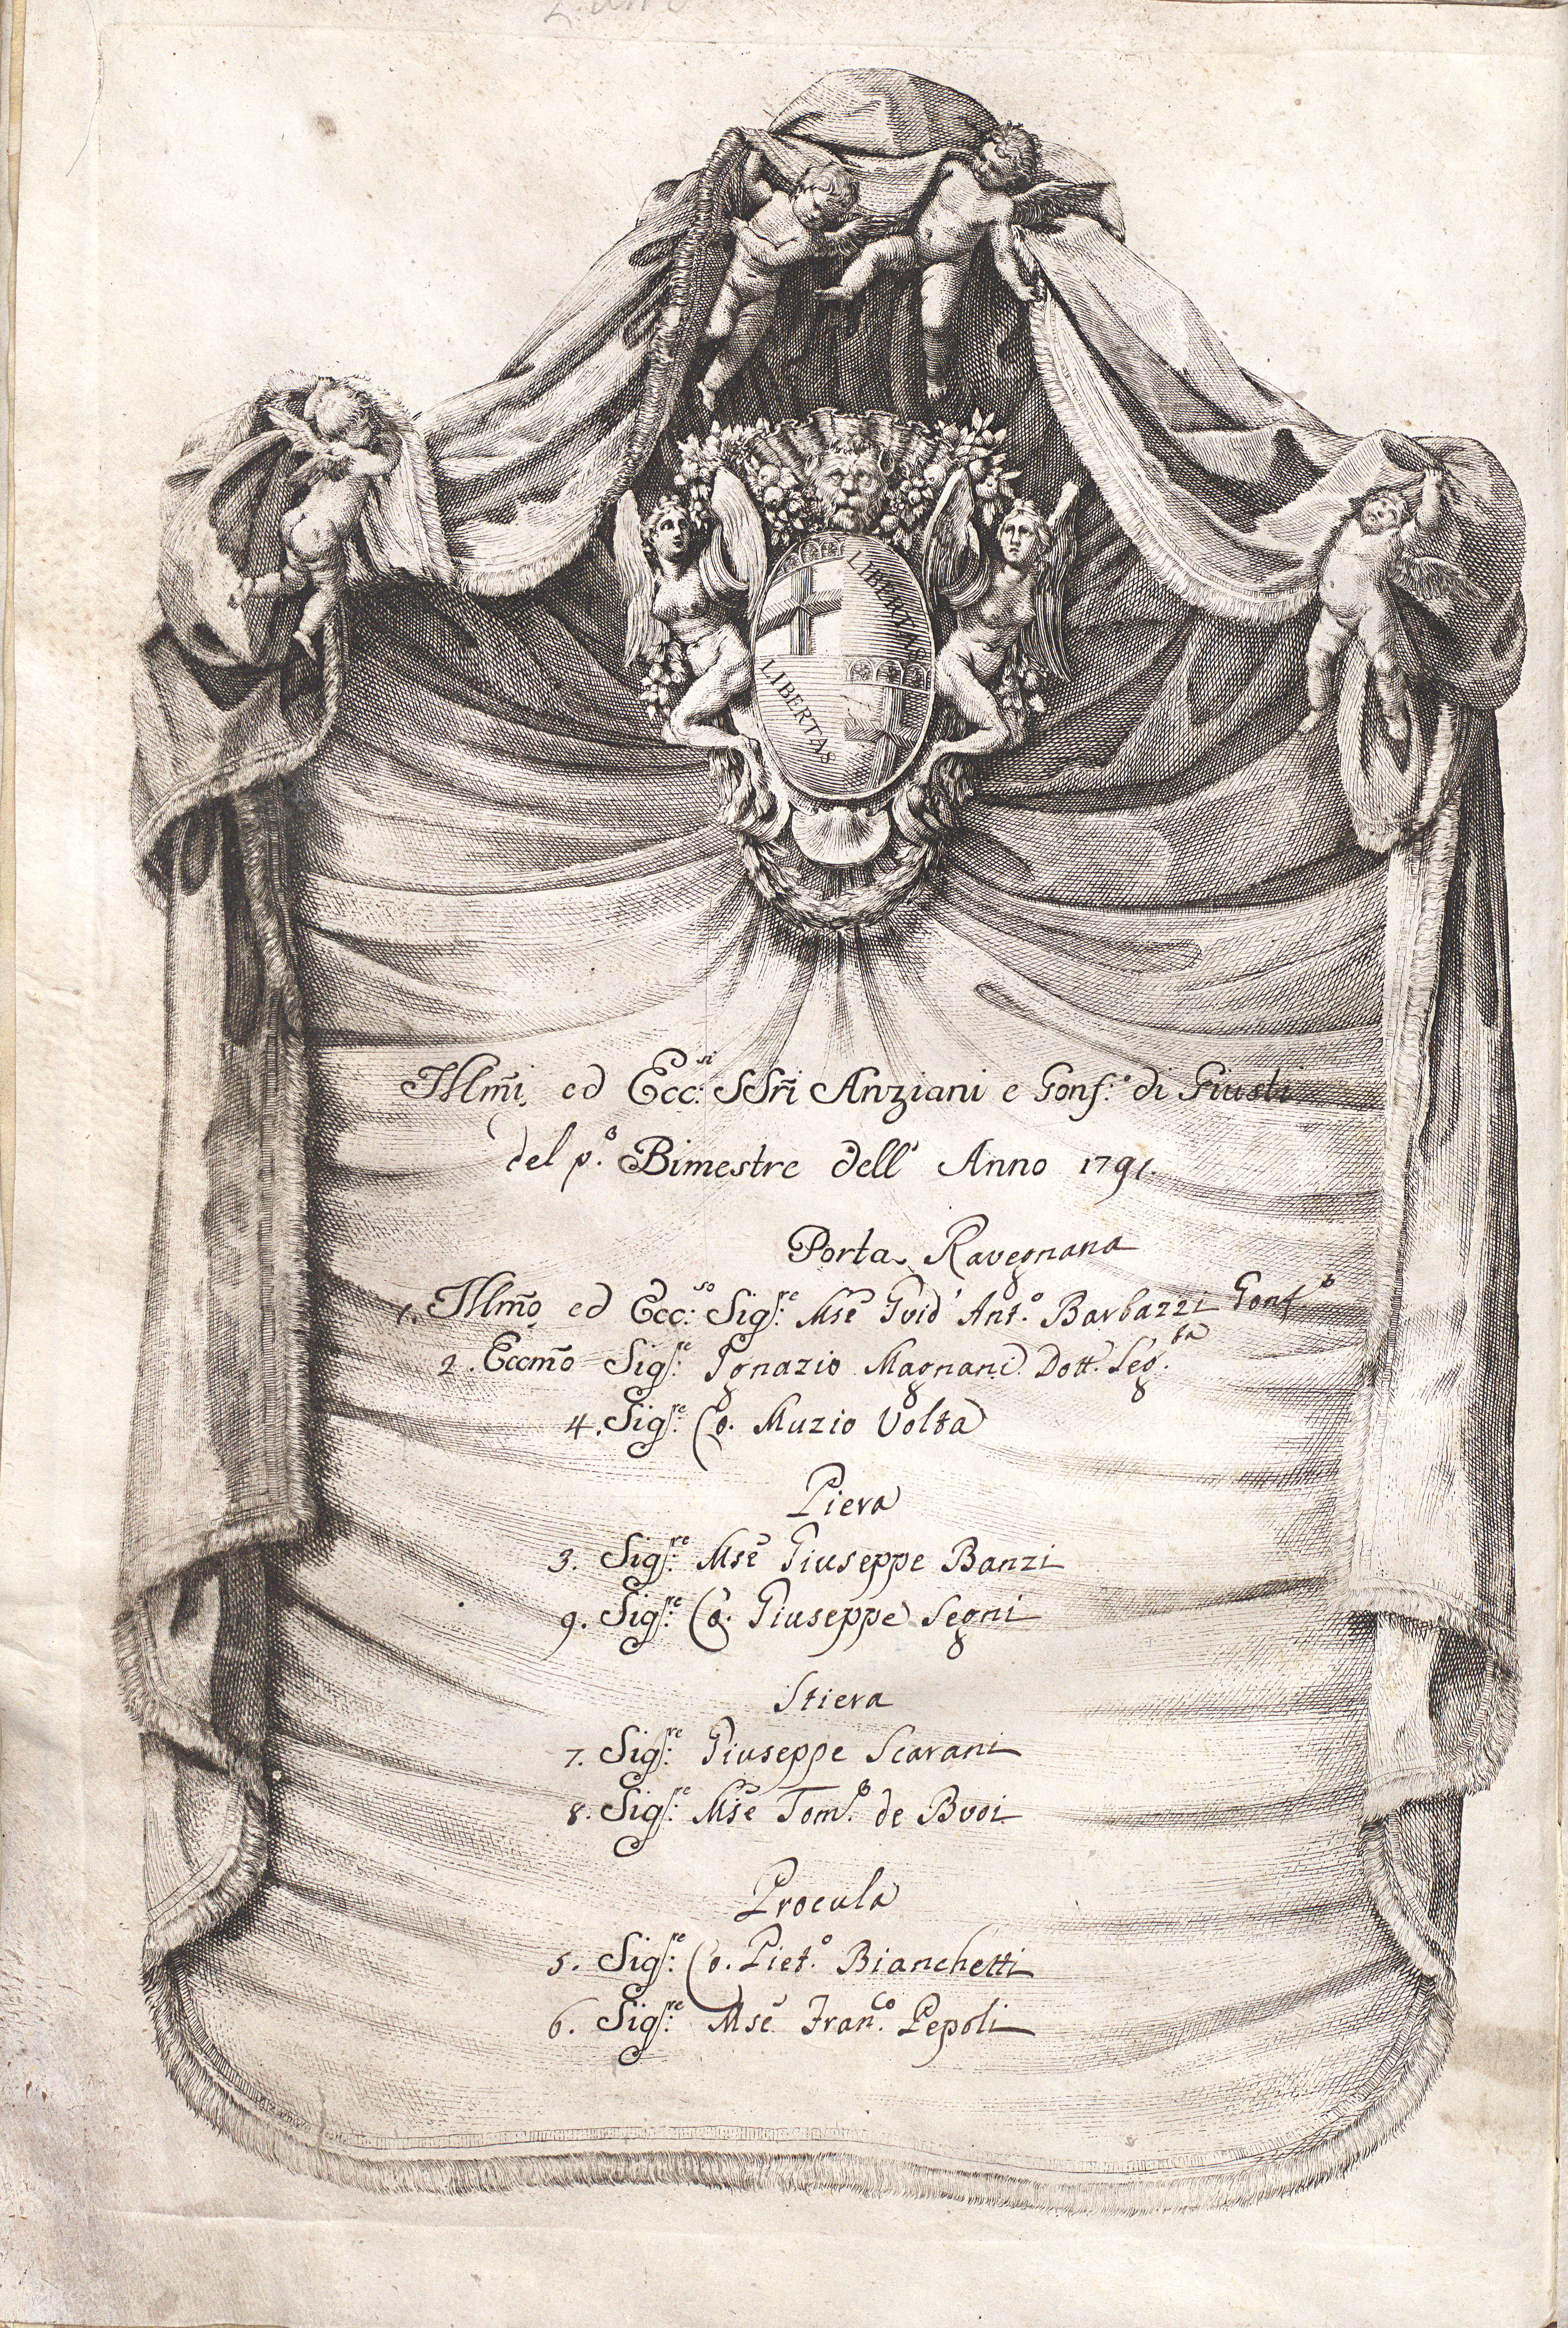 LIBERTAS
LIBERTAS
Illm̃i, ed Ecc:si SSr̃i Anziani e Gonf:e di Giusti
del p.o Bimestre dell' Anno 1791.
Porta Ravegnana
1. Illm̃o, ed Ecc:so Sig:re Mse Guid' Ant.o Barbazzi Gonf.o
2. Eccm̃o Sig:re Ignazio Magnani Dott. Leg:ta
4. Sig:re Co. Muzio Volta
Piera
3. Sig:re Mse Giuseppe Banzi
9. Sig:re Co. Giuseppe Segni
Stiera
7. Sig:re Giuseppe Scarani
8. Sig:re Mse Tom.o de Buoi
Procula
5. Sig:re Co. Piet.o Bianchetti
6. Sig:re Mse Fran.co Pepoli